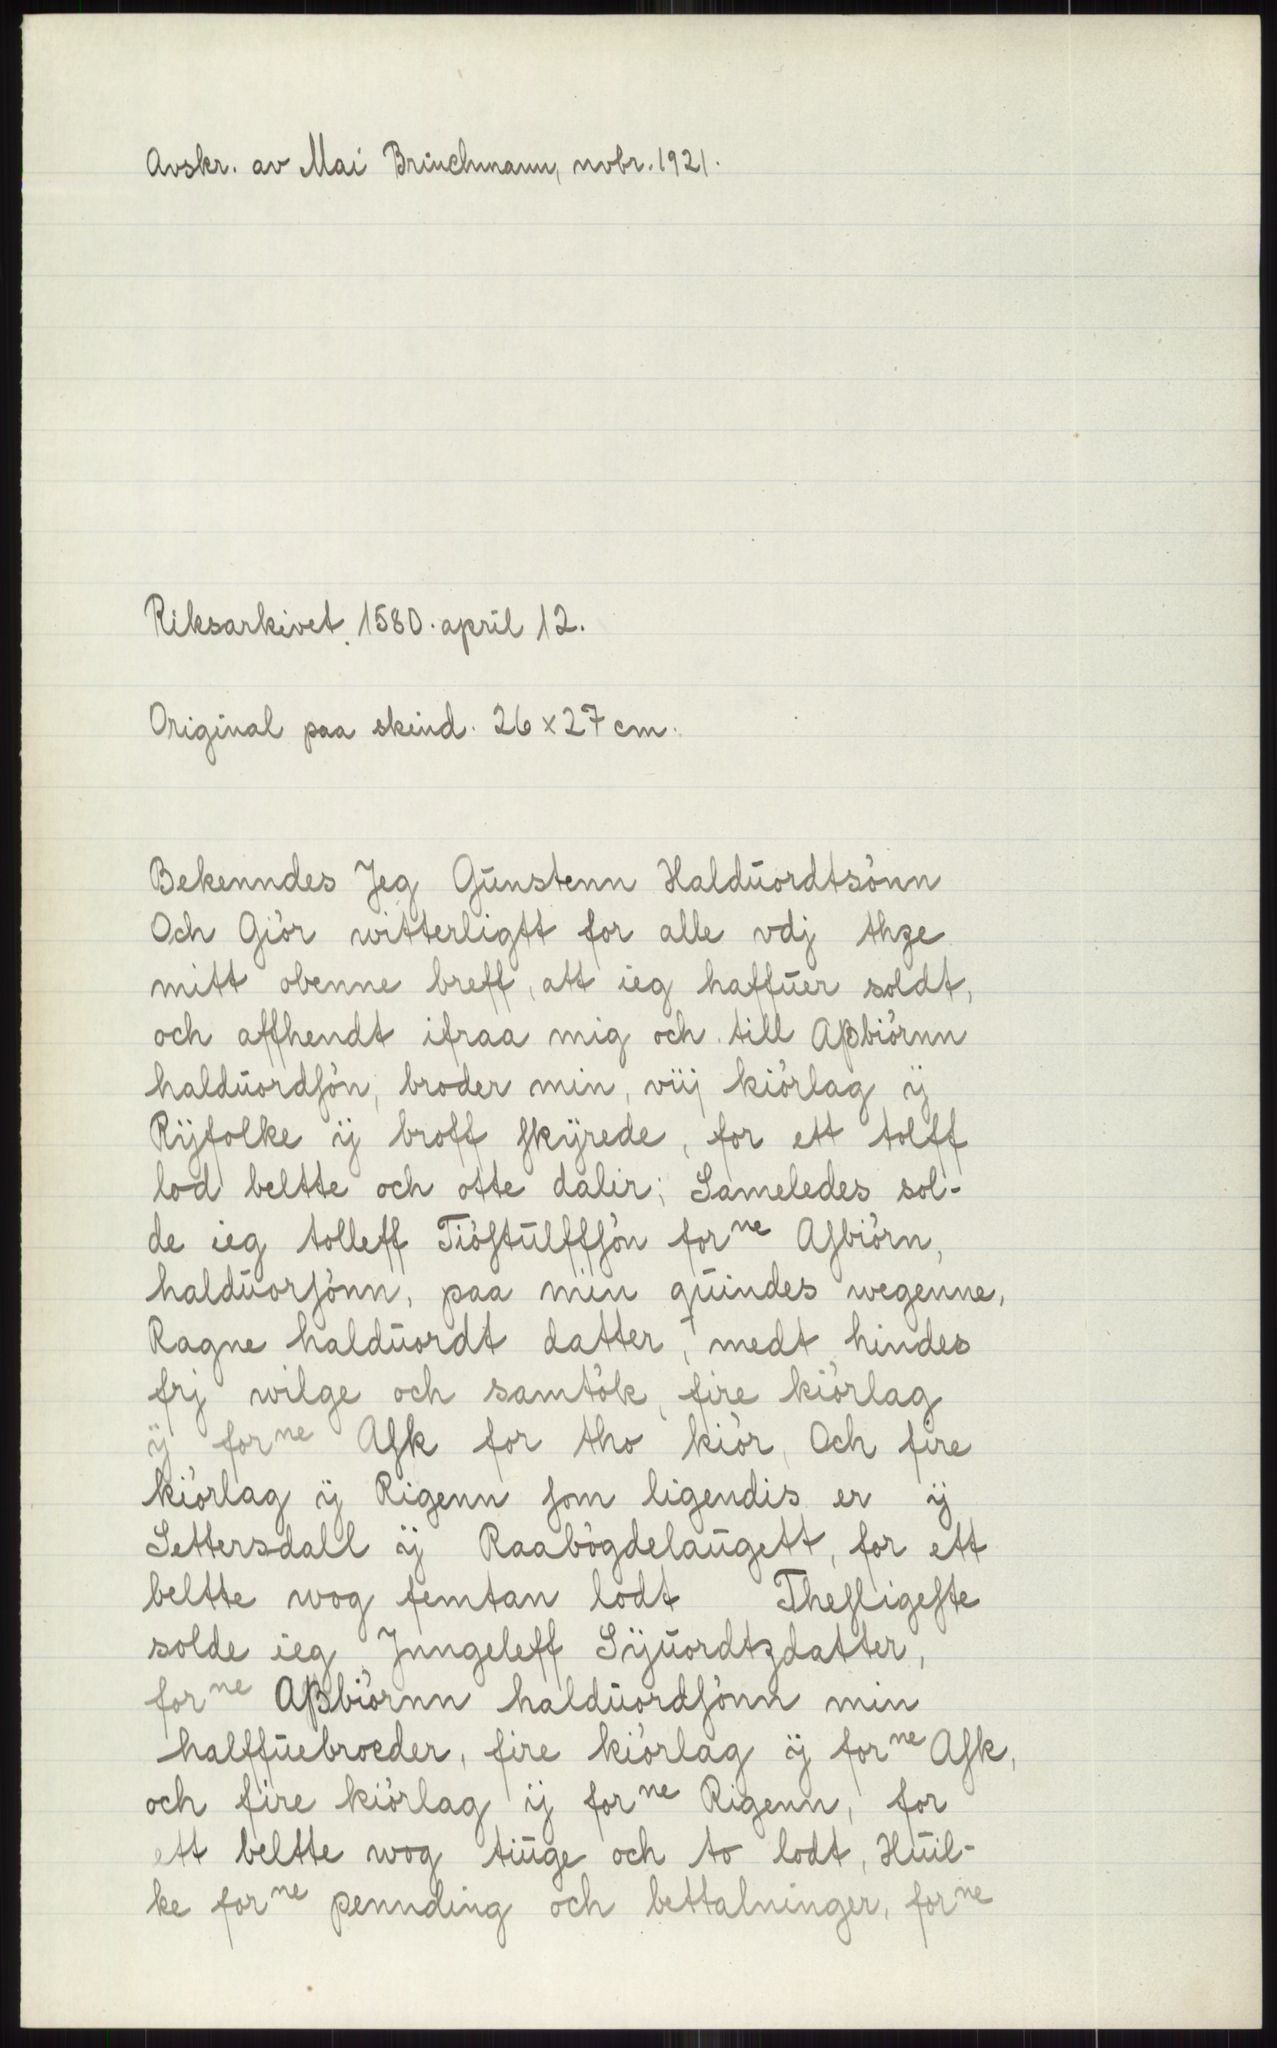 Avskr. av Mai Brinchmann, novbr. 1921.
Riksarkivet. 1580. april 12.
Original paa skind. 26 x 27 cm.
Bekenndes Jeg Gūnstenn Haldūordtsönn
Och Giör witterligtt for alle vdj thze
mitt obenne breff, att ieg haffūer soldt,
och affhendt ifraa mig och till Aßbiörnn
haldūordſön, broder min, viij kiörlag ÿ
Rÿfolke ÿ broff ſkÿrede, for ett tolff
lod beltte och otte dalir; Sameledes sol-
de ieg tolleff Tiöſtūlffſön forⁿᵉ Aſbiörn,
haldūorſönn, paa min qūindes wegenne,
Ragne haldūordt datter, medt hindes
frj wilge och samtök, fire kiörlag
ÿ forⁿᵉ Aſk for tho kiör, Och fire
kiörlag ÿ Rigenn ſom ligendis er ÿ
Settersdall ÿ Raabögdelaūgett, for ett
beltte wog femtan lodt Theſligeſte
solde ieg Jnngeleff Sÿūordtzdatter,
forⁿᵉ Aßbiörnn haldūordſönn min
halffūebroeder, fire kiörlag ÿ forⁿᵉ Aſk,
och fire kiörlag ÿ forⁿᵉ Rigenn, for
ett beltte wog tiūge och to lodt, Hūil-
ke forⁿᵉ pennding och bettalninger, forⁿᵉ